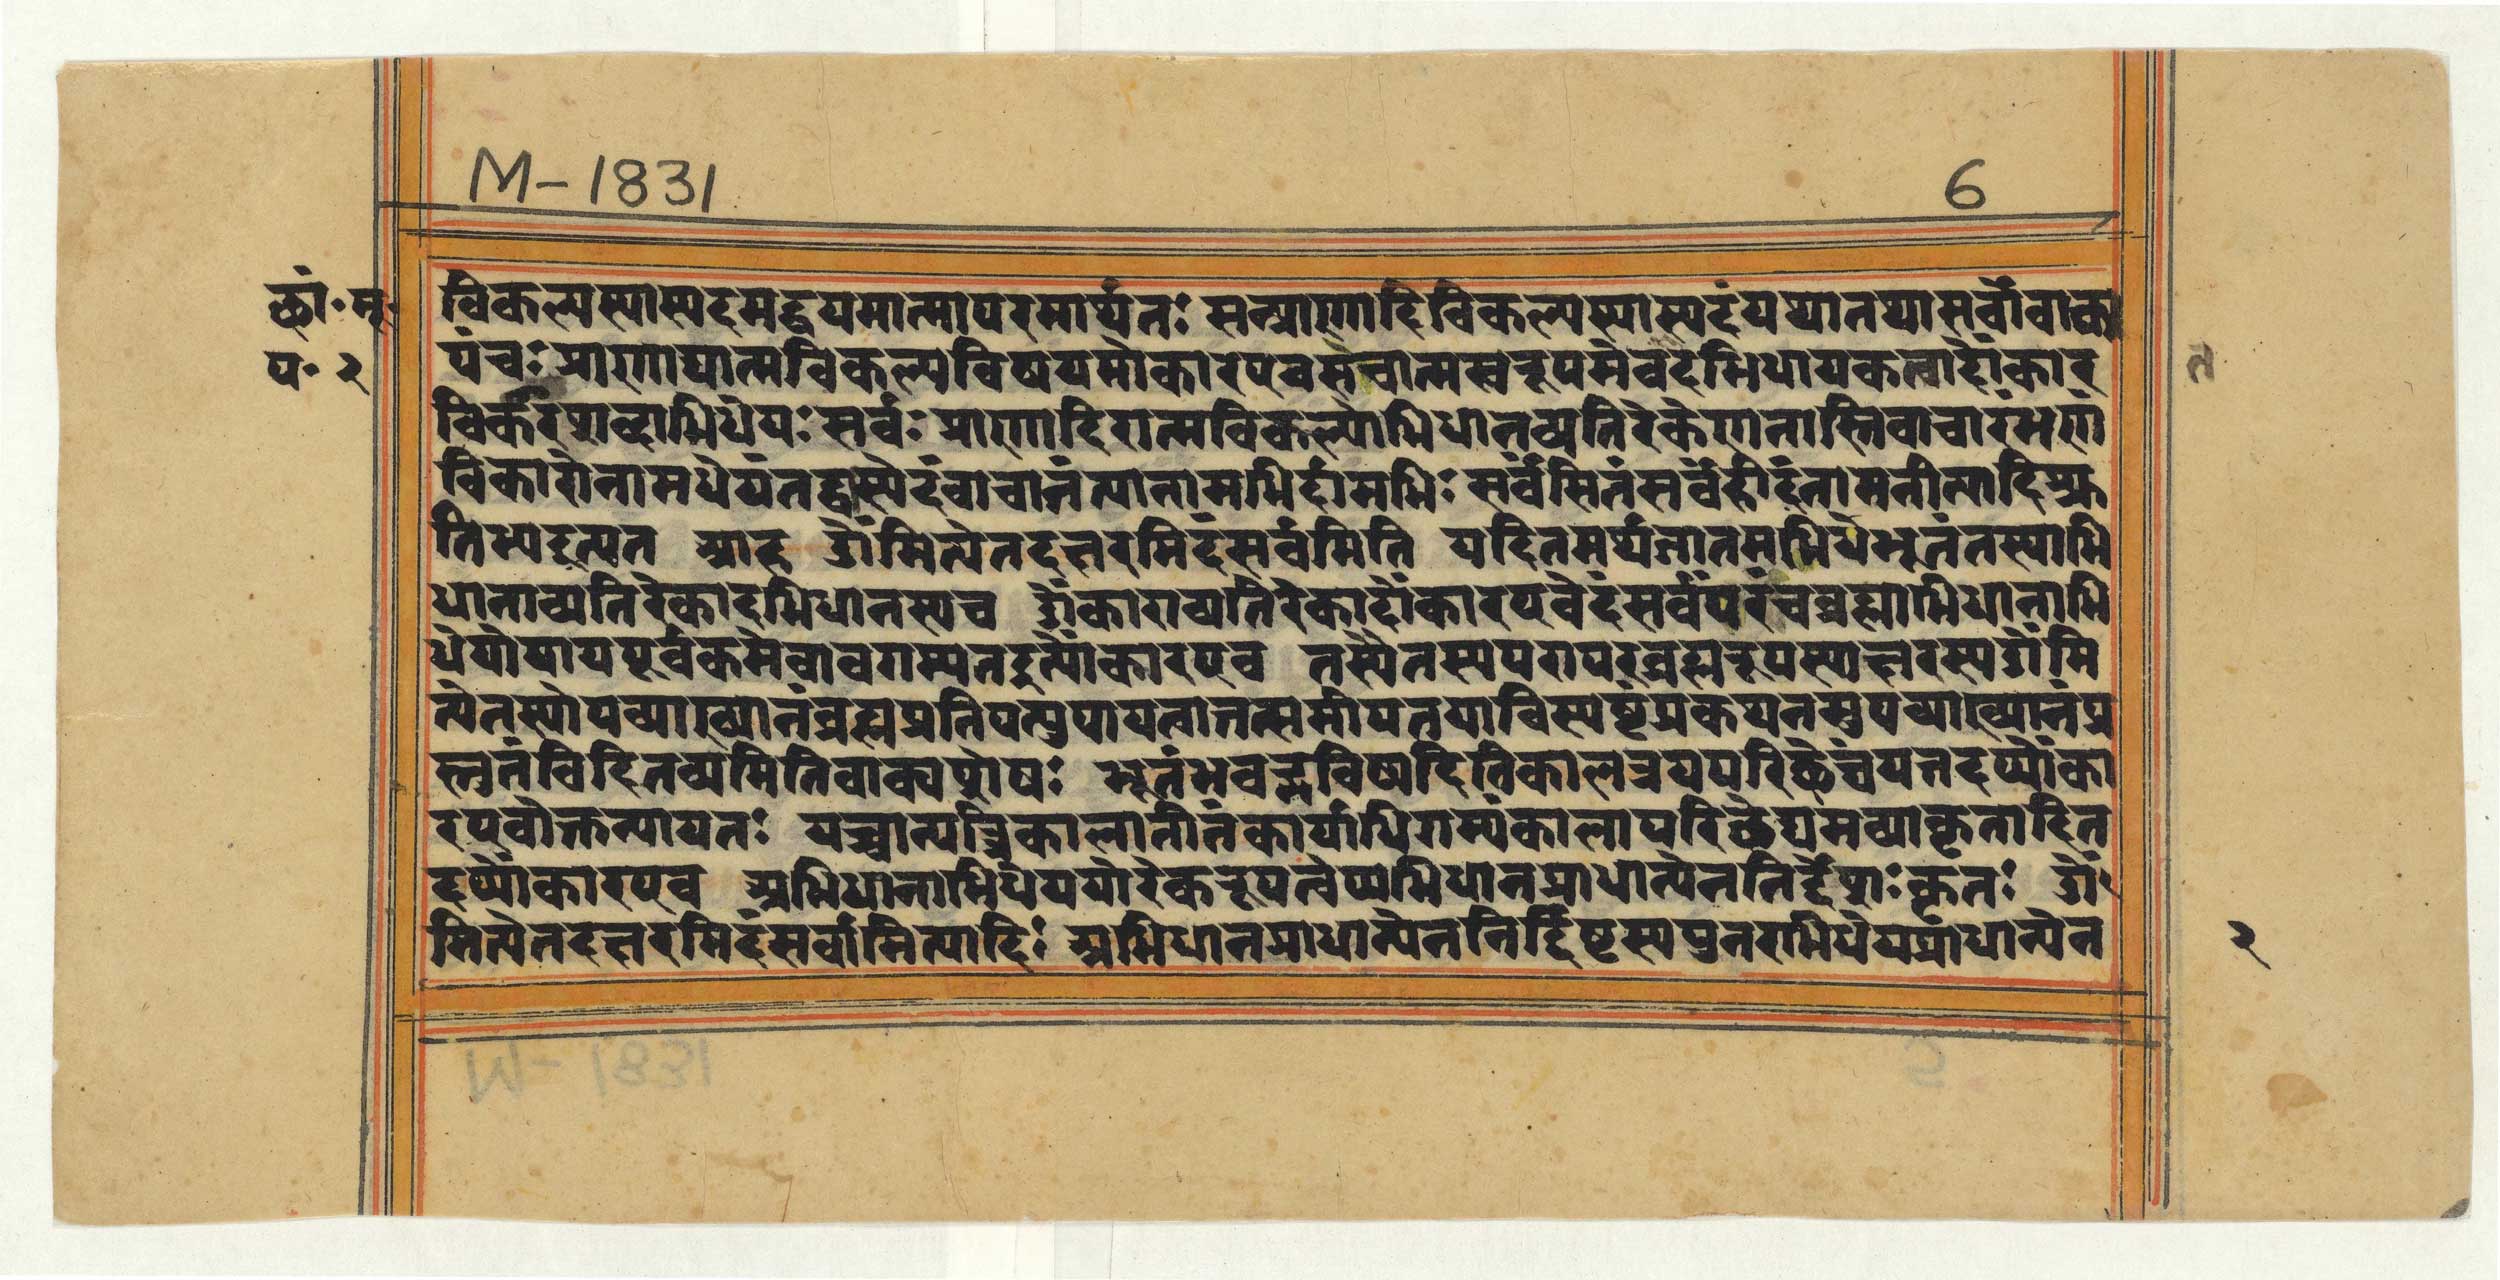 M-1831
6
छां॰ मू॰
प॰ २
विकल्पस्यास्पदमद्वयमात्मापरमार्थतः सन्प्राणादिविकल्पस्यास्पदंयथातथासर्वोवाक्प्र
पंचः प्राणाद्यात्मविकल्पविषयमोंकारएवसचात्मस्वरूपमेवदभिधायकत्वादोंकार
त
विकारशब्दाभिधेयः सर्वः प्राणादिरात्मविकल्पोभिधानव्यतिरेकेणनास्तिवाचारंभणं
विकारोनामधेयंतद्वास्येदंवाचातंत्यानामभिर्दामभिः सर्वंसितंसर्वंहीदंनामनीत्यादिश्रु
तिभ्यइत्यत आह ॐमित्येतदक्षरमिदंसर्वमिति यदितमर्थजातमभिधेभूतंतस्याभि
धानाव्यतिरेकादभिधानस्यच ॐकाराव्यतिरेकादोंकारएवेदंसर्वंपरंचब्रह्माभिधानाभि
धेयोपायपूर्वकमेवावगम्यतइत्योंकारएव तस्यैतस्यपरापरब्रह्मरूपस्याक्षरस्यॐमि
त्येतस्योपव्याख्यानंब्रह्मप्रतिपत्त्युपायत्वात्तत्समीपतयाविस्पष्टंप्रकथनमुपव्याख्यानंप्र
स्तुतंविदितव्यमितिवाक्यशेषः भूतंभवद्भविष्यदितिकालत्रयपरिछेद्यंयत्तदप्योंका
रएवोक्तन्यायतः यच्चान्यत्त्रिकालातीतंकार्याधिगम्यंकालापरिछेद्यमव्याकृतादित
दप्योंकारएव अभिधानाभिधेययोरेकरूपत्वेप्यभिधानप्राधान्येननिर्द्देशःकृतः ॐ
मित्येतदक्षरमिदंसर्वमित्यादिः अभिधानप्राधान्येननिर्द्दिष्टस्यपुनराभिधेयप्राधान्येन
२